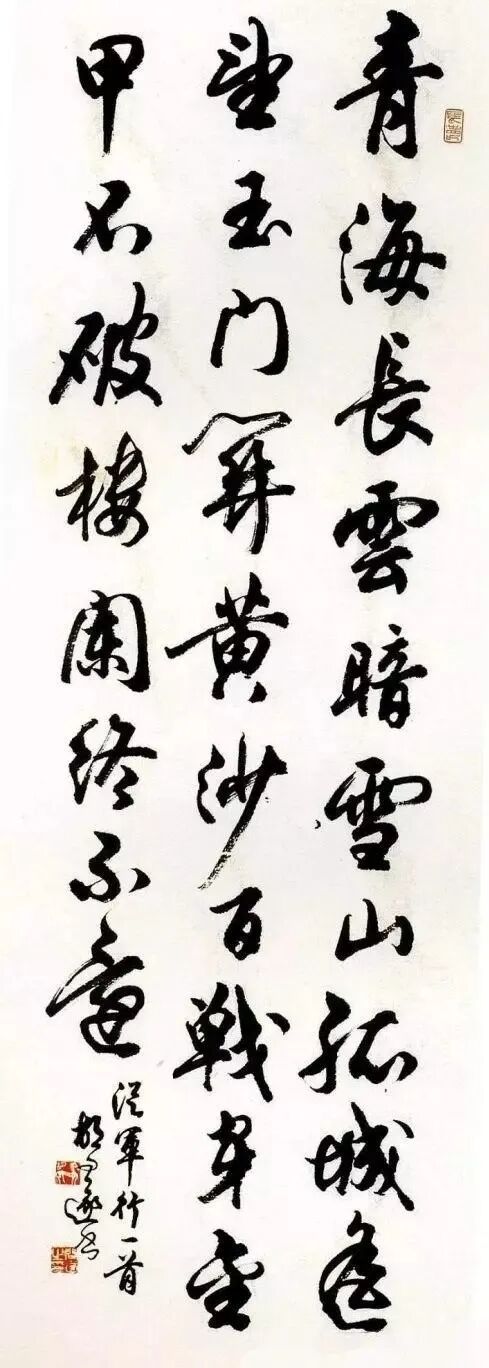 青海長雲暗雪山孤城遙
望玉门關黄沙百戰穿金
甲不破樓蘭終不還
從軍行一首
胡问遂书